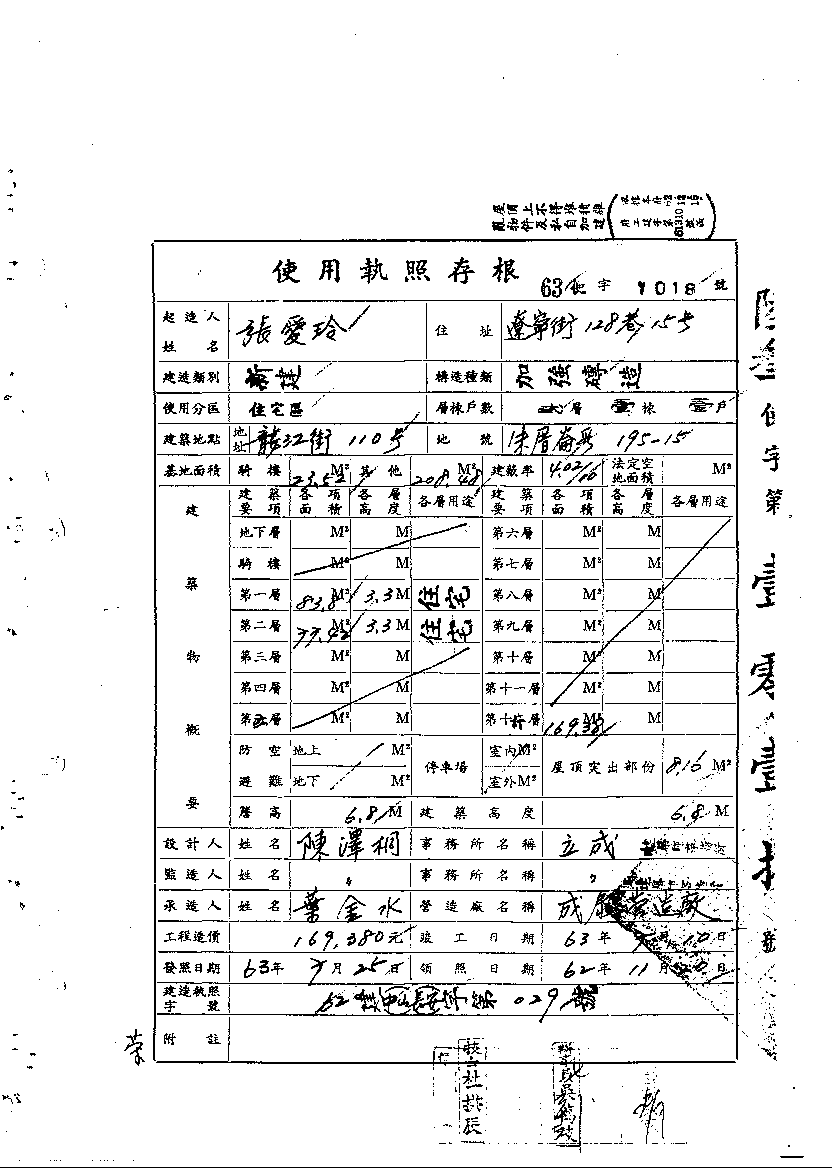 屋頂上不得堆積雜
亂物件及私自加建
使用執照存根
63 使 字 1018 號
起造人姓名 張愛玲 住址 遼寧街128巷15号
建造類別 新建 構造種類 加強磚造
使用分區 住宅區 層棟戶數 層 壹棟 壹戶
建築地點 地址 龍江街110号 地號 195-15
基地面積 騎樓 23.52 M² 其他 208.48 M² 建蔽率 4.02/10 法定空地面積 M²
建築物概要
建築要項 各項面積 各層高度 各層用途 建築要項 各項面積 各層高度 各層用途
地下層 M² M 第六層 M² M
騎樓 M² M 第七層 M² M
第一層 83.8 M² 3.3 M 住宅 第八層 M² M
第二層 77.42 M² 3.3 M 住宅 第九層 M² M
第三層 M² M 第十層 M² M
第四層 M² M 第十一層 M² M
第五層 M² M 169.38 M²
防空避難 地上 M² 地下 M² 停車場 室內 M² 室外 M² 屋頂突出部份 8.16 M²
簷高 6.8 M 建築高度 6.8 M
設計人 姓名 陳澤桐 事務所名稱 立成
監造人 姓名 〃 事務所名稱 〃
承造人 姓名 葉金水 營造廠名稱 營造廠
工程造價 169,380元 竣工日期 63年 月10日
發照日期 63年7月25日 領照日期 62年11月20日
建造執照字號 62 029號
附註